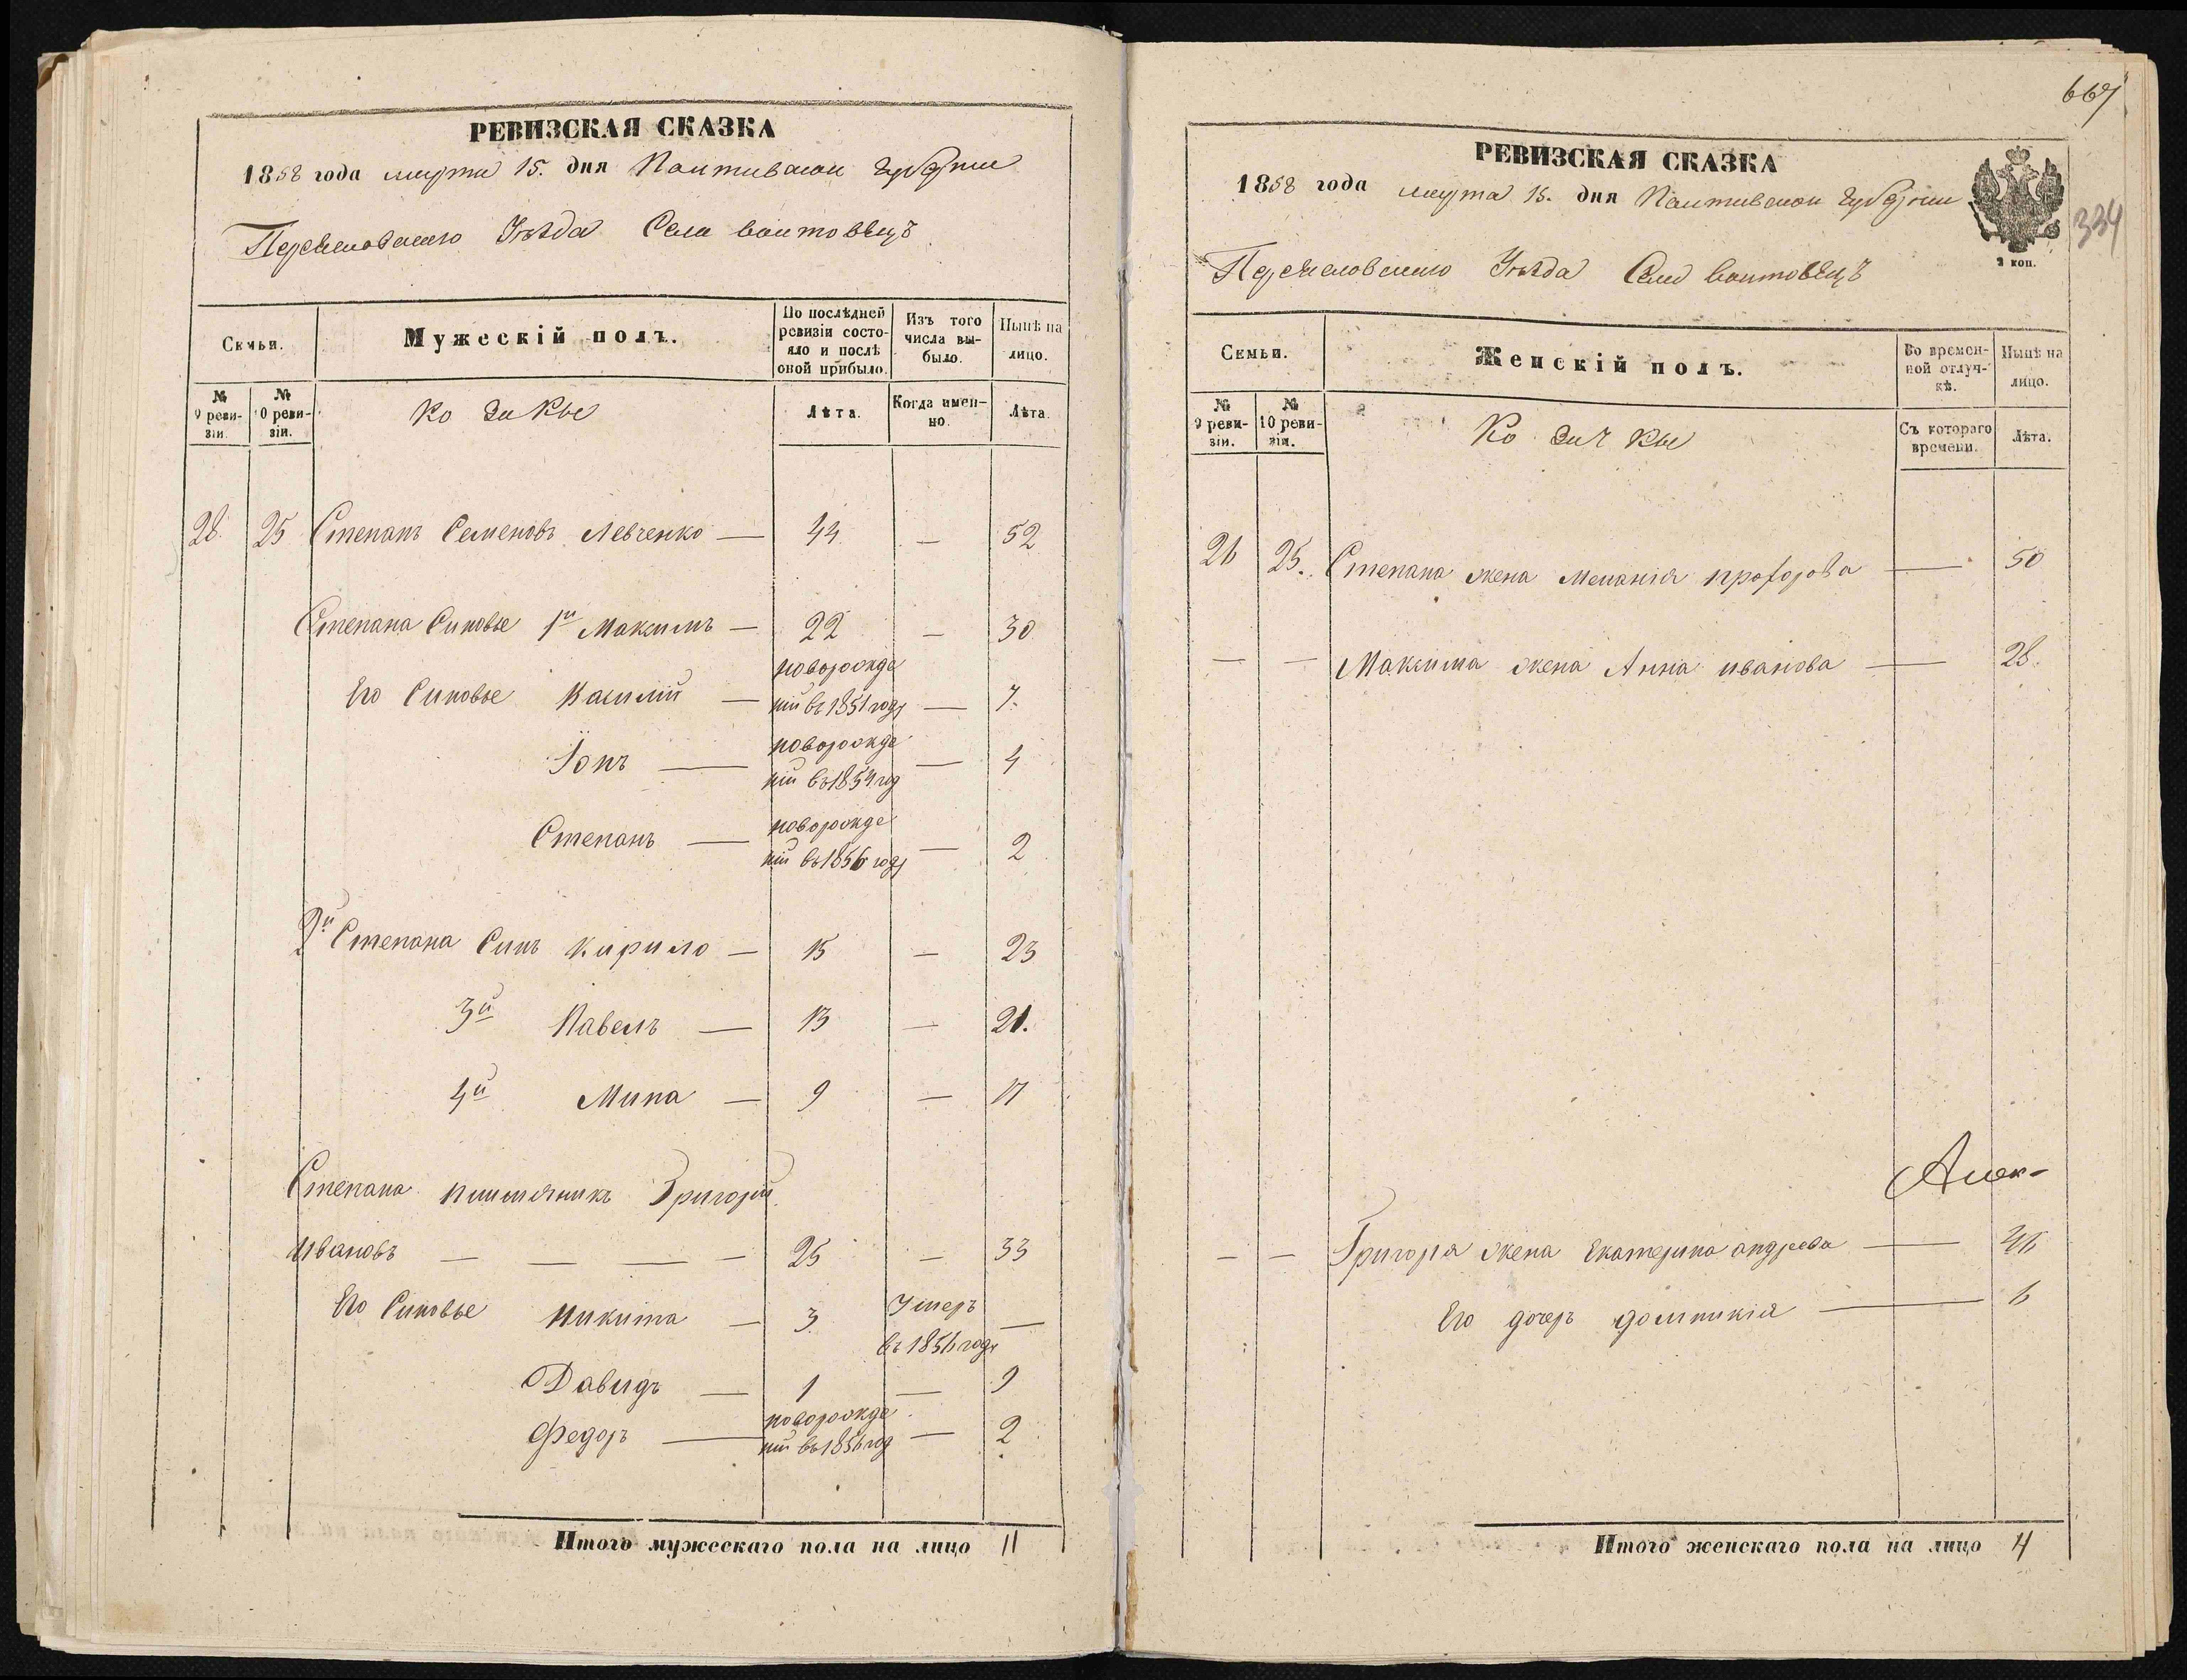 РЕВИЗСКАЯ СКАЗКА
1858 года марта 15. дня Полтавской губернии
Переяславского Уѣзда Села Войтовецъ
Семьи.
Мужескій полъ.
По послѣдней ревизіи состояло и послѣ оной прибыло.
Изъ того числа выбыло.
Нынѣ на лицо.
№ 9 ревизіи.
№ 10 ревизіи.
Козаки
Лѣта.
Когда именно.
Лѣта.
28. 25 Степанъ Семеновъ Левченко — 44 — 52
Степана Синовье 1й Максимъ — 22 — 30
Его Синовье Василій — новорожденій въ 1851 году — 7.
Іонъ — новорожденій въ 1854 год — 4
Степанъ — новорожденій въ 1856 году — 2
2й Степана Синъ Кирило — 15 — 23
3й Павелъ — 13 — 21.
4й Мина — 9 — 17
Степана племяникъ Григорій
Ивановъ — — — — 25 — 33
Его Синовье Никита — 3 Умеръ въ 1856 году —
Давидъ — 1 — 9
Федоръ — новорожденій въ 1856 год — 2
Итого мужескаго пола на лицо 11
667
334
РЕВИЗСКАЯ СКАЗКА
1858 года марта 15. дня Полтавской губернии
2 коп.
Переяславского Уѣзда Села Войтовецъ
Семьи.
Женскій полъ.
Во временной отлучкѣ.
Нынѣ на лицо.
№ 9 ревизіи.
№ 10 ревизіи.
Козачки
Съ котораго времени.
Лѣта.
25. Степана жена Меланія прохорова — 50
— — Максима жена Анна иванова — 28.
Алек-
— — Григорія жена Екатерина андреева —
Его дочеръ домникія — 6
Итого женскаго пола на лицо 4